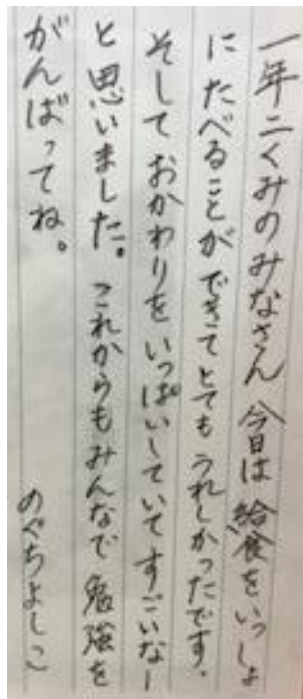 一年二くみのみなさん 今日は給食をいっしょ
にたべることができてとてもうれしかったです.
そしておかわりをいっぱいしていてすごいなー
と思いました。これからもみんなで勉強を
がんばってね。
のぐちよしこ